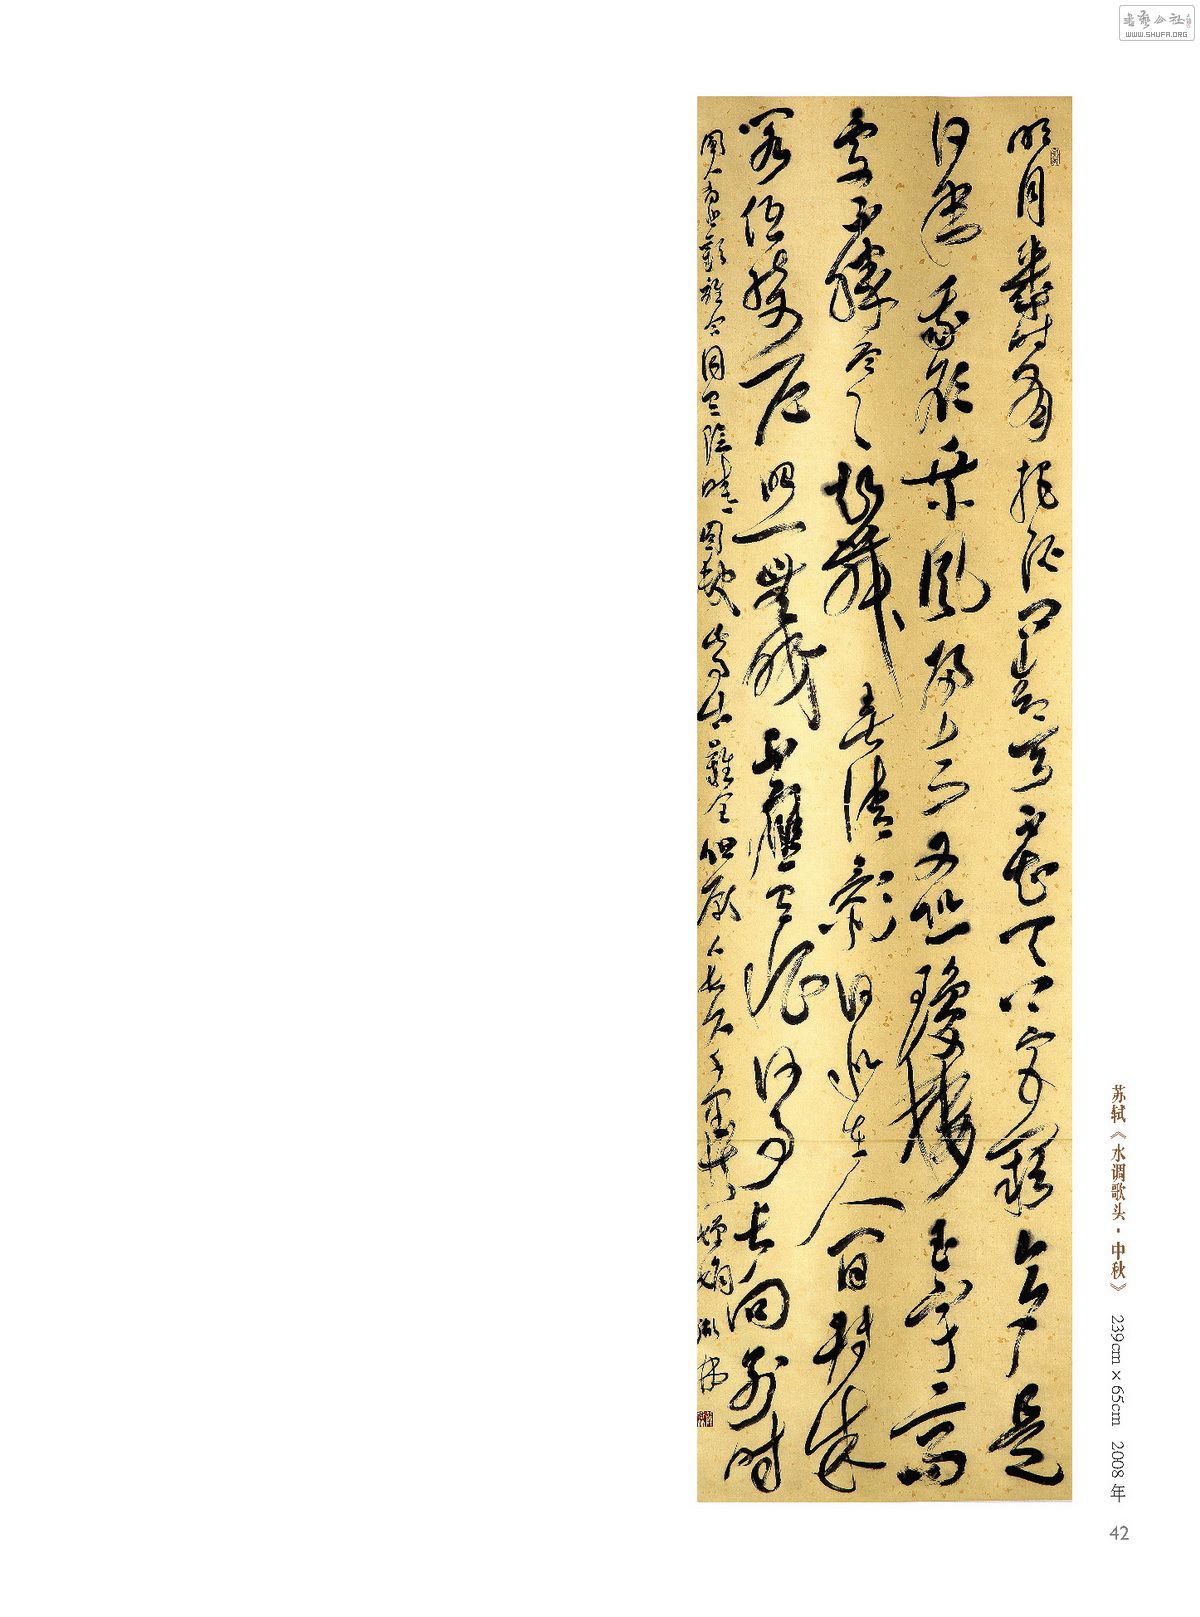 書藝公社
WWW.SHUFA.ORG
明月幾时有把酒问青天不知天上宫闕今夕是
何年我欲乘風歸去又恐瓊樓玉宇高
處不勝寒起舞弄清影何似在人間轉朱
閣低綺户照無眠不應有恨何事长向别时
圓人有悲歡離合月有陰晴圓缺此事古難全但願人长久千里共嬋娟
苏轼《水调歌头·中秋》 239cm×65cm 2008年
42